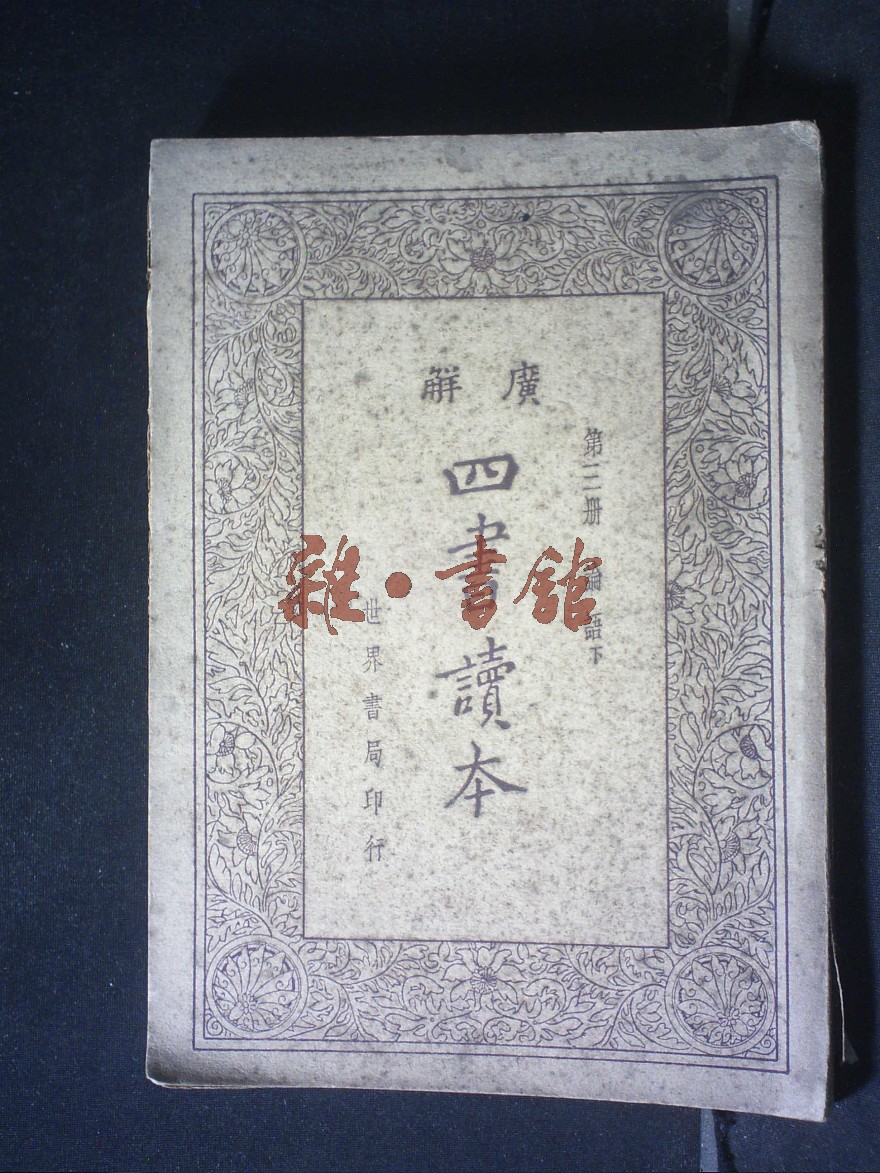 廣解
第三册 論語下
四書讀本
世界書局印行
雜·書館